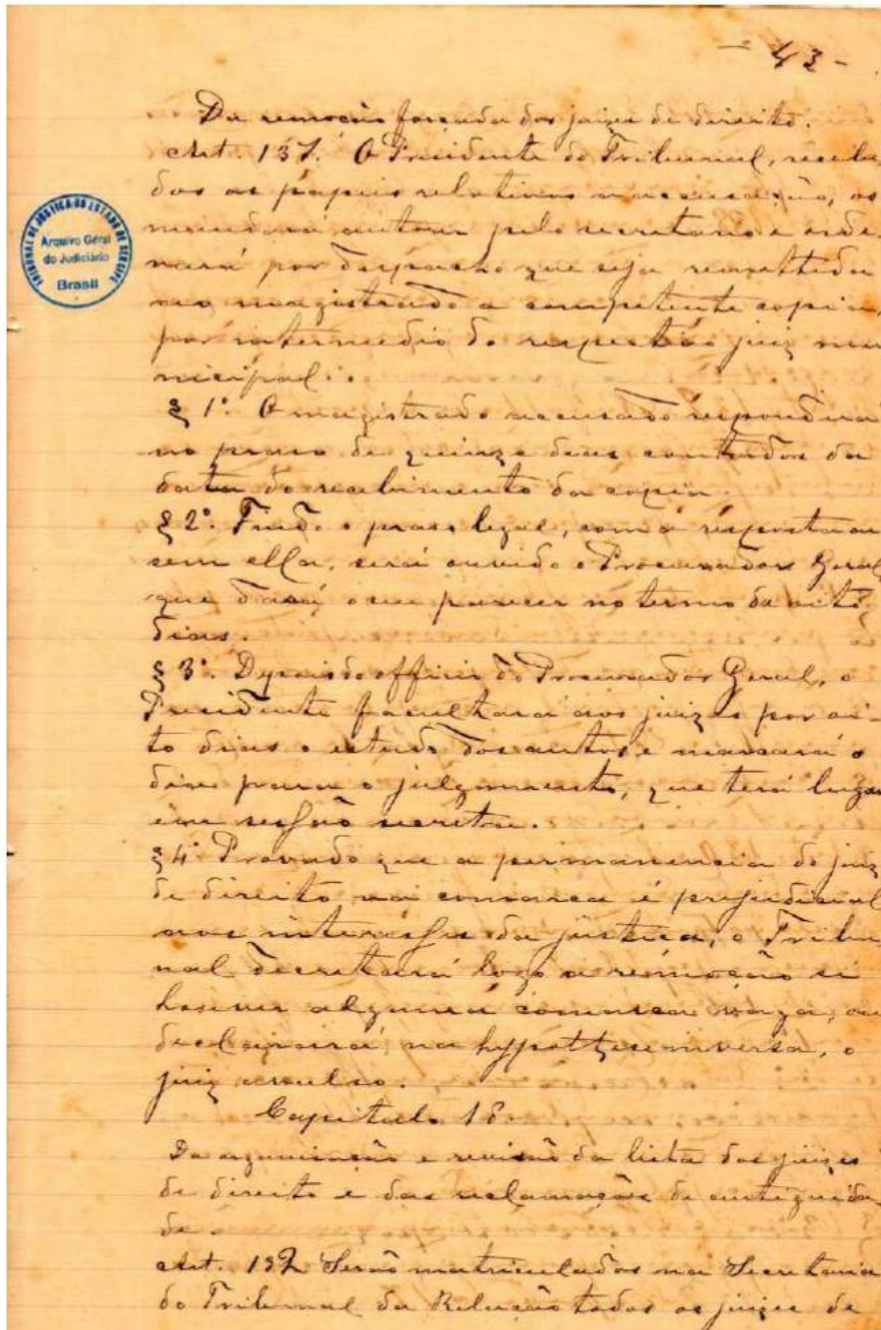 - 43 -
Da remoção forçada dos juizes de direito.
Art. 137. O Presidente do Tribunal, recebi,
dos os papeis relativos a accusação, os
mandará autuar pelo secretario e orde,
nará por despacho que seja remettida
ao magistrado a competente copia,
por intermedio do respectivo juiz mu
nicipal.
§ 1º. O magistrado accusado responderá
no praso de quinze dias contados da
data do recebimento da copia.
§ 2º. Findo o praso legal, com a resposta ou
sem ella, será ouvido o Procurador Geral
que dará o seu parecer no termo de oito
dias.
§ 3º. Depois do officio do Procurador Geral, o
Presidente facultará aos juizes por oi-
to dias o estudo dos autos e marcará o
dia para o julgamento, que terá lugar
em sessão secreta.
§ 4º Provado que a permanencia do juiz
de direito na comarca é prejudicial
aos interesses da justiça, o Tribu,
nal decretará logo a remoção si
houver alguma comarca vaga, ou
declarará, na hypothese inversa, o
juiz avulso.
Capitulo 18.
Da organisação e revisão da lista dos juizes
de direito e das reclamações de antiguida,
de
Art. 132 Serão matriculados na Secretaria
do Tribunal da Relação todos os juizes de
TRIBUNAL DE JUSTIÇA DO ESTADO DE SERGIPE
Arquivo Geral
do Judiciário
Brasil